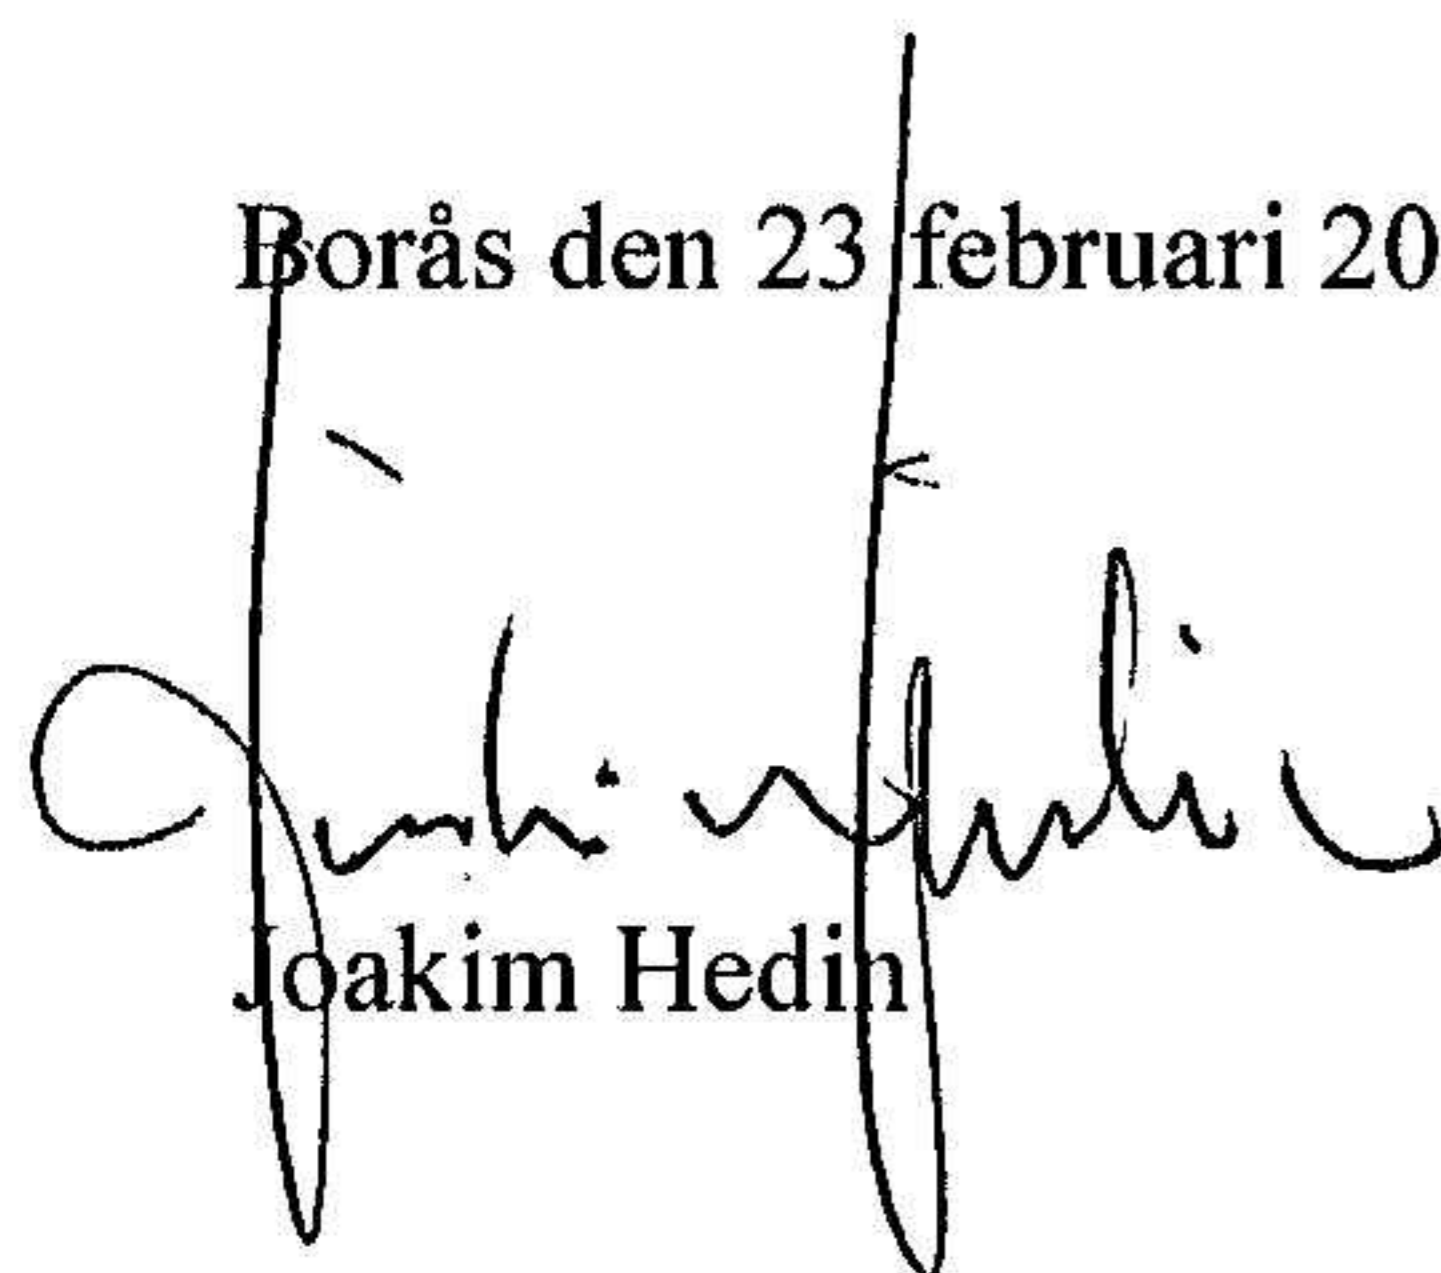 Borås den 23 februari 20
Joakim Hedin